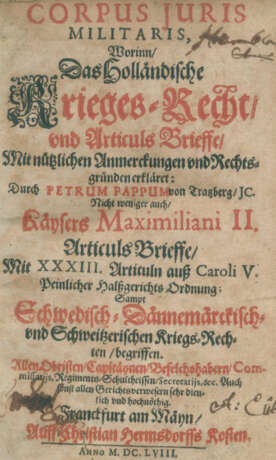 CORPUS JURIS
MILITARIS,
Worinn/
Das Holländische
Krieges-Recht/
und Articuls Brieffe/
Mit nützlichen Anmerckungen und Rechts-
gründen erkläret:
Durch PETRUM PAPPUM von Tratzberg/ JC.
Nicht weniger auch/
Käysers Maximiliani II.
Articuls Brieffe/
Mit XXXIII. Articuln auß Caroli V.
Peinlicher Halßgerichts Ordnung:
Sampt
Schwedisch- Dännemärckisch-
und Schweitzerischen Kriegs-Rech-
ten/ begriffen.
Allen Obristen/ Capitäynen/ Befelchshabern/ Com-
missarijs, Regiments-Schultheissen/ Secretarijs, &c. Auch
sonst allen Gerichtsverwesern sehr dien-
lich und hochnöthig.
Franckfurt am Mäyn/
Auff Christian Hermsdorffs Kosten.
ANNO M. DC. LVIII.